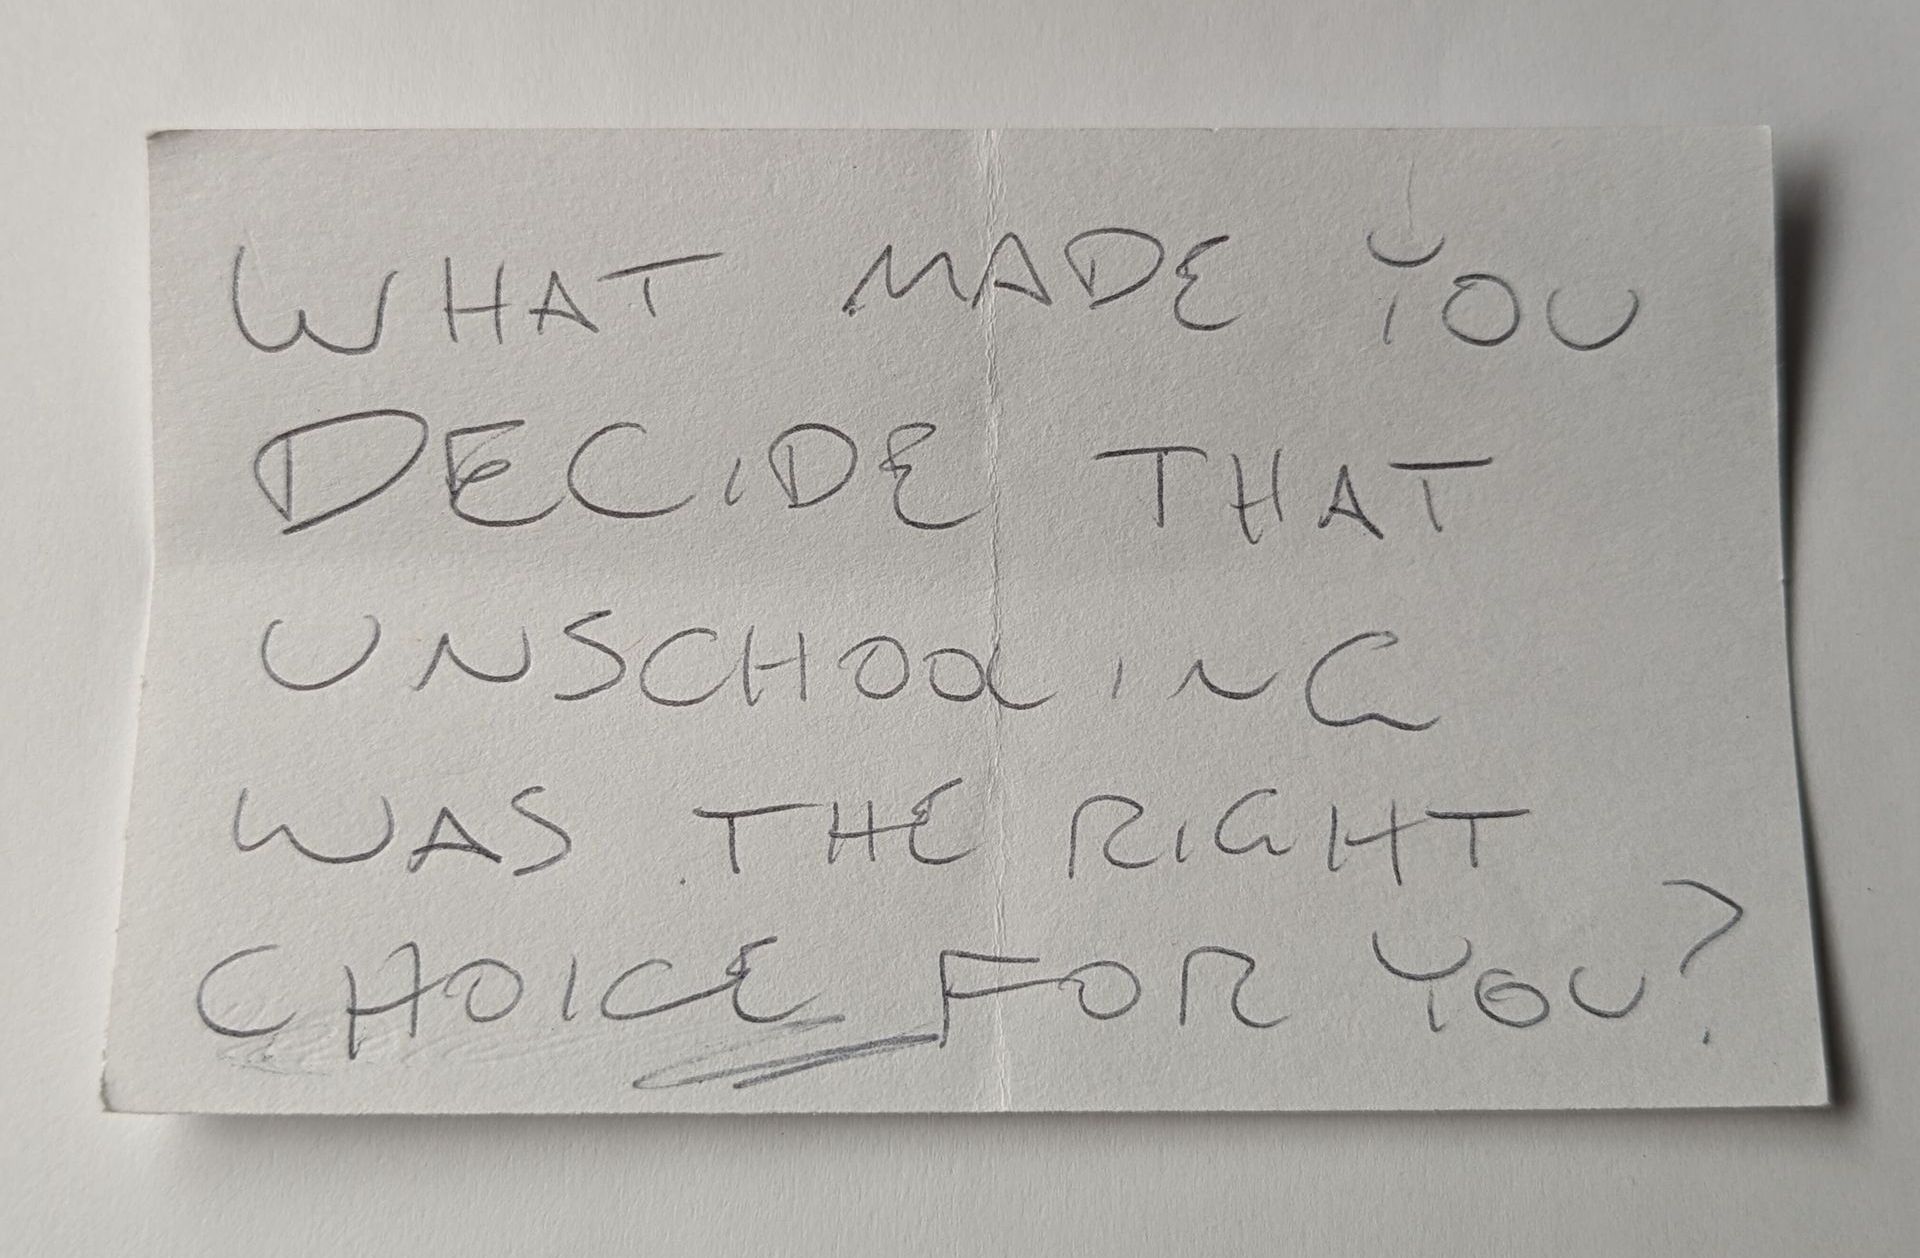 WHAT MADE YOU
DECIDE THAT
UNSCHOOLING
WAS THE RIGHT
CHOICE FOR YOU?